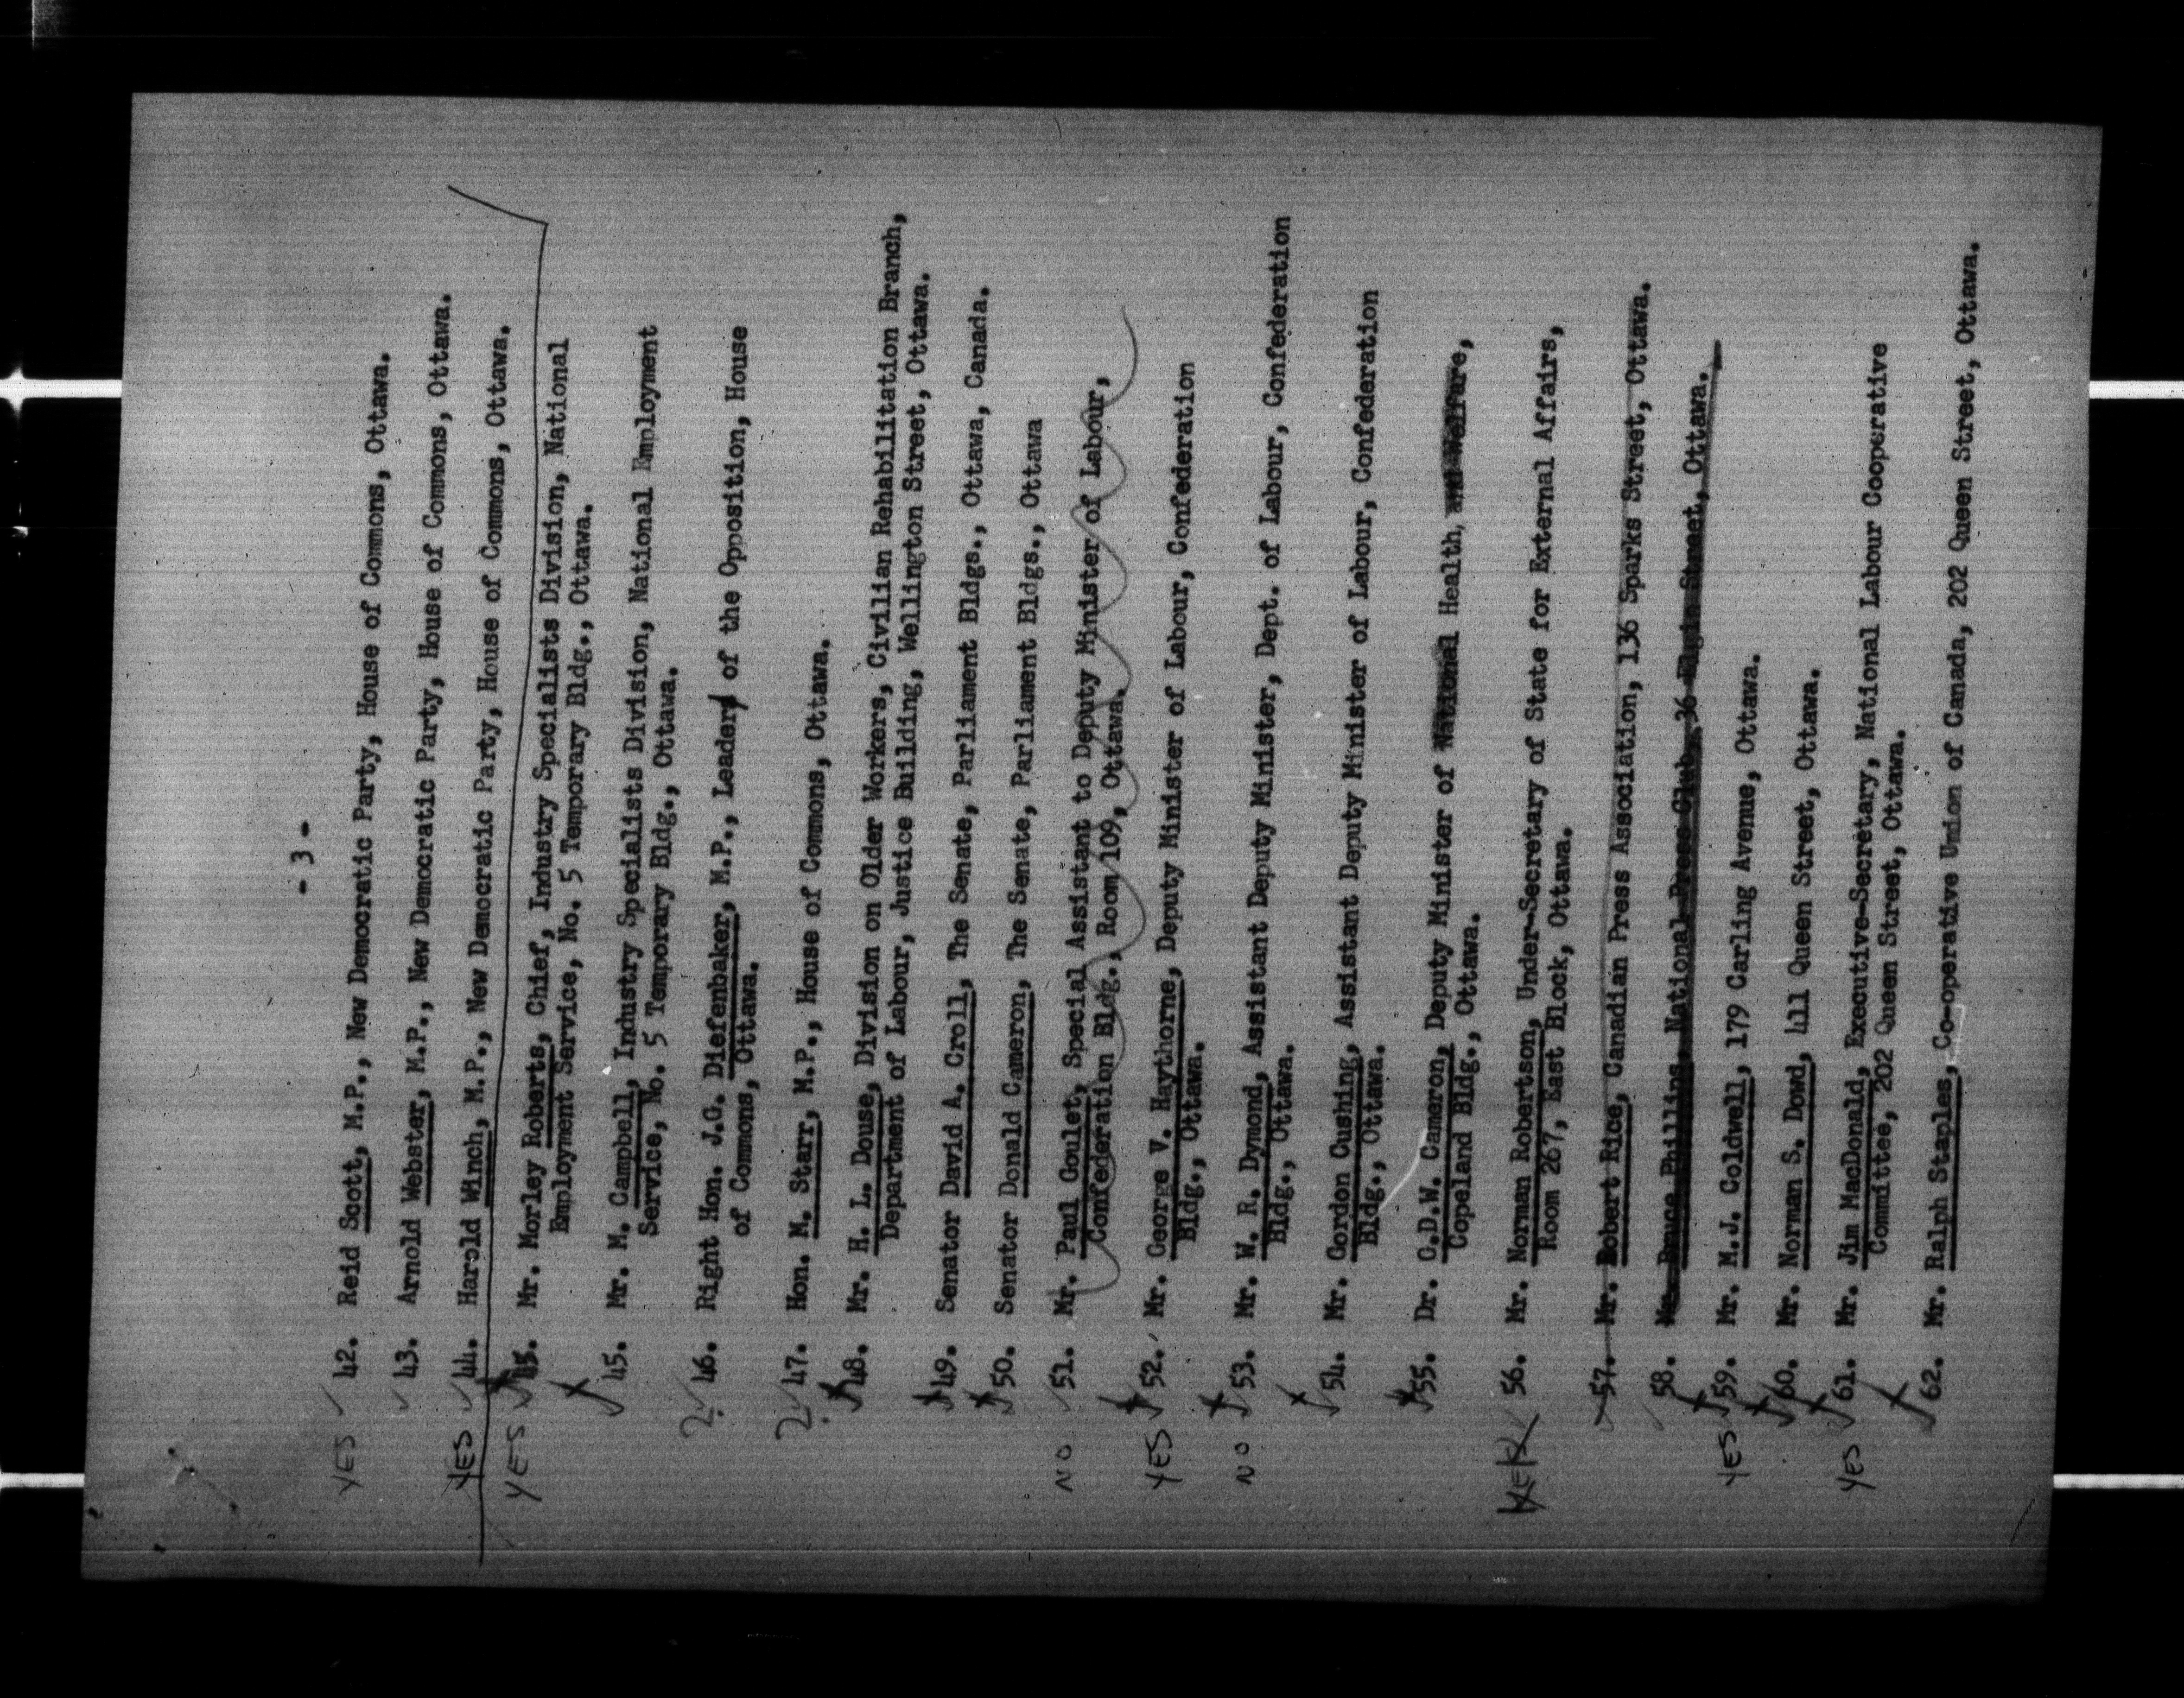 - 3 -
YES ✓ 42. Reid Scott, M.P., New Democratic Party, House of Commons, Ottawa.
✓ 43. Arnold Webster, M.P., New Democratic Party, House of Commons, Ottawa.
YES ✓ 44. Harold Winch, M.P., New Democratic Party, House of Commons, Ottawa.
YES ✓ 45. Mr. Morley Roberts, Chief, Industry Specialists Division, National
Employment Service, No. 5 Temporary Bldg., Ottawa.
✓ 45. Mr. M. Campbell, Industry Specialists Division, National Employment
Service, No. 5 Temporary Bldg., Ottawa.
? ✓ 46. Right Hon. J.G. Diefenbaker, M.P., Leader of the Opposition, House
of Commons, Ottawa.
? ✓ 47. Hon. M. Starr, M.P., House of Commons, Ottawa.
✓ 48. Mr. H. L. Douse, Division on Older Workers, Civilian Rehabilitation Branch,
Department of Labour, Justice Building, Wellington Street, Ottawa.
✓ 49. Senator David A. Croll, The Senate, Parliament Bldgs., Ottawa, Canada.
✓ 50. Senator Donald Cameron, The Senate, Parliament Bldgs., Ottawa
NO ✓ 51. Mr. Paul Goulet, Special Assistant to Deputy Minister of Labour,
Confederation Bldg., Room 109, Ottawa.
YES ✓ 52. Mr. George V. Haythorne, Deputy Minister of Labour, Confederation
Bldg., Ottawa.
NO ✓ 53. Mr. W. R. Dymond, Assistant Deputy Minister, Dept. of Labour, Confederation
Bldg., Ottawa.
✓ 54. Mr. Gordon Cushing, Assistant Deputy Minister of Labour, Confederation
Bldg., Ottawa.
✓ 55. Dr. G.D.W. Cameron, Deputy Minister of National Health, and Welfare,
Copeland Bldg., Ottawa.
✓ 56. Mr. Norman Robertson, Under-Secretary of State for External Affairs,
Room 267, East Block, Ottawa.
✓ 57. Mr. Robert Rice, Canadian Press Association, 136 Sparks Street, Ottawa.
✓ 58. Mr. Bruce Phillips, National Press Club, 36 Elgin Street, Ottawa.
YES ✓ 59. Mr. M.J. Coldwell, 179 Carling Avenue, Ottawa.
✓ 60. Mr. Norman S. Dowd, 411 Queen Street, Ottawa.
YES ✓ 61. Mr. Jim MacDonald, Executive-Secretary, National Labour Cooperative
Committee, 202 Queen Street, Ottawa.
✓ 62. Mr. Ralph Staples, Co-operative Union of Canada, 202 Queen Street, Ottawa.